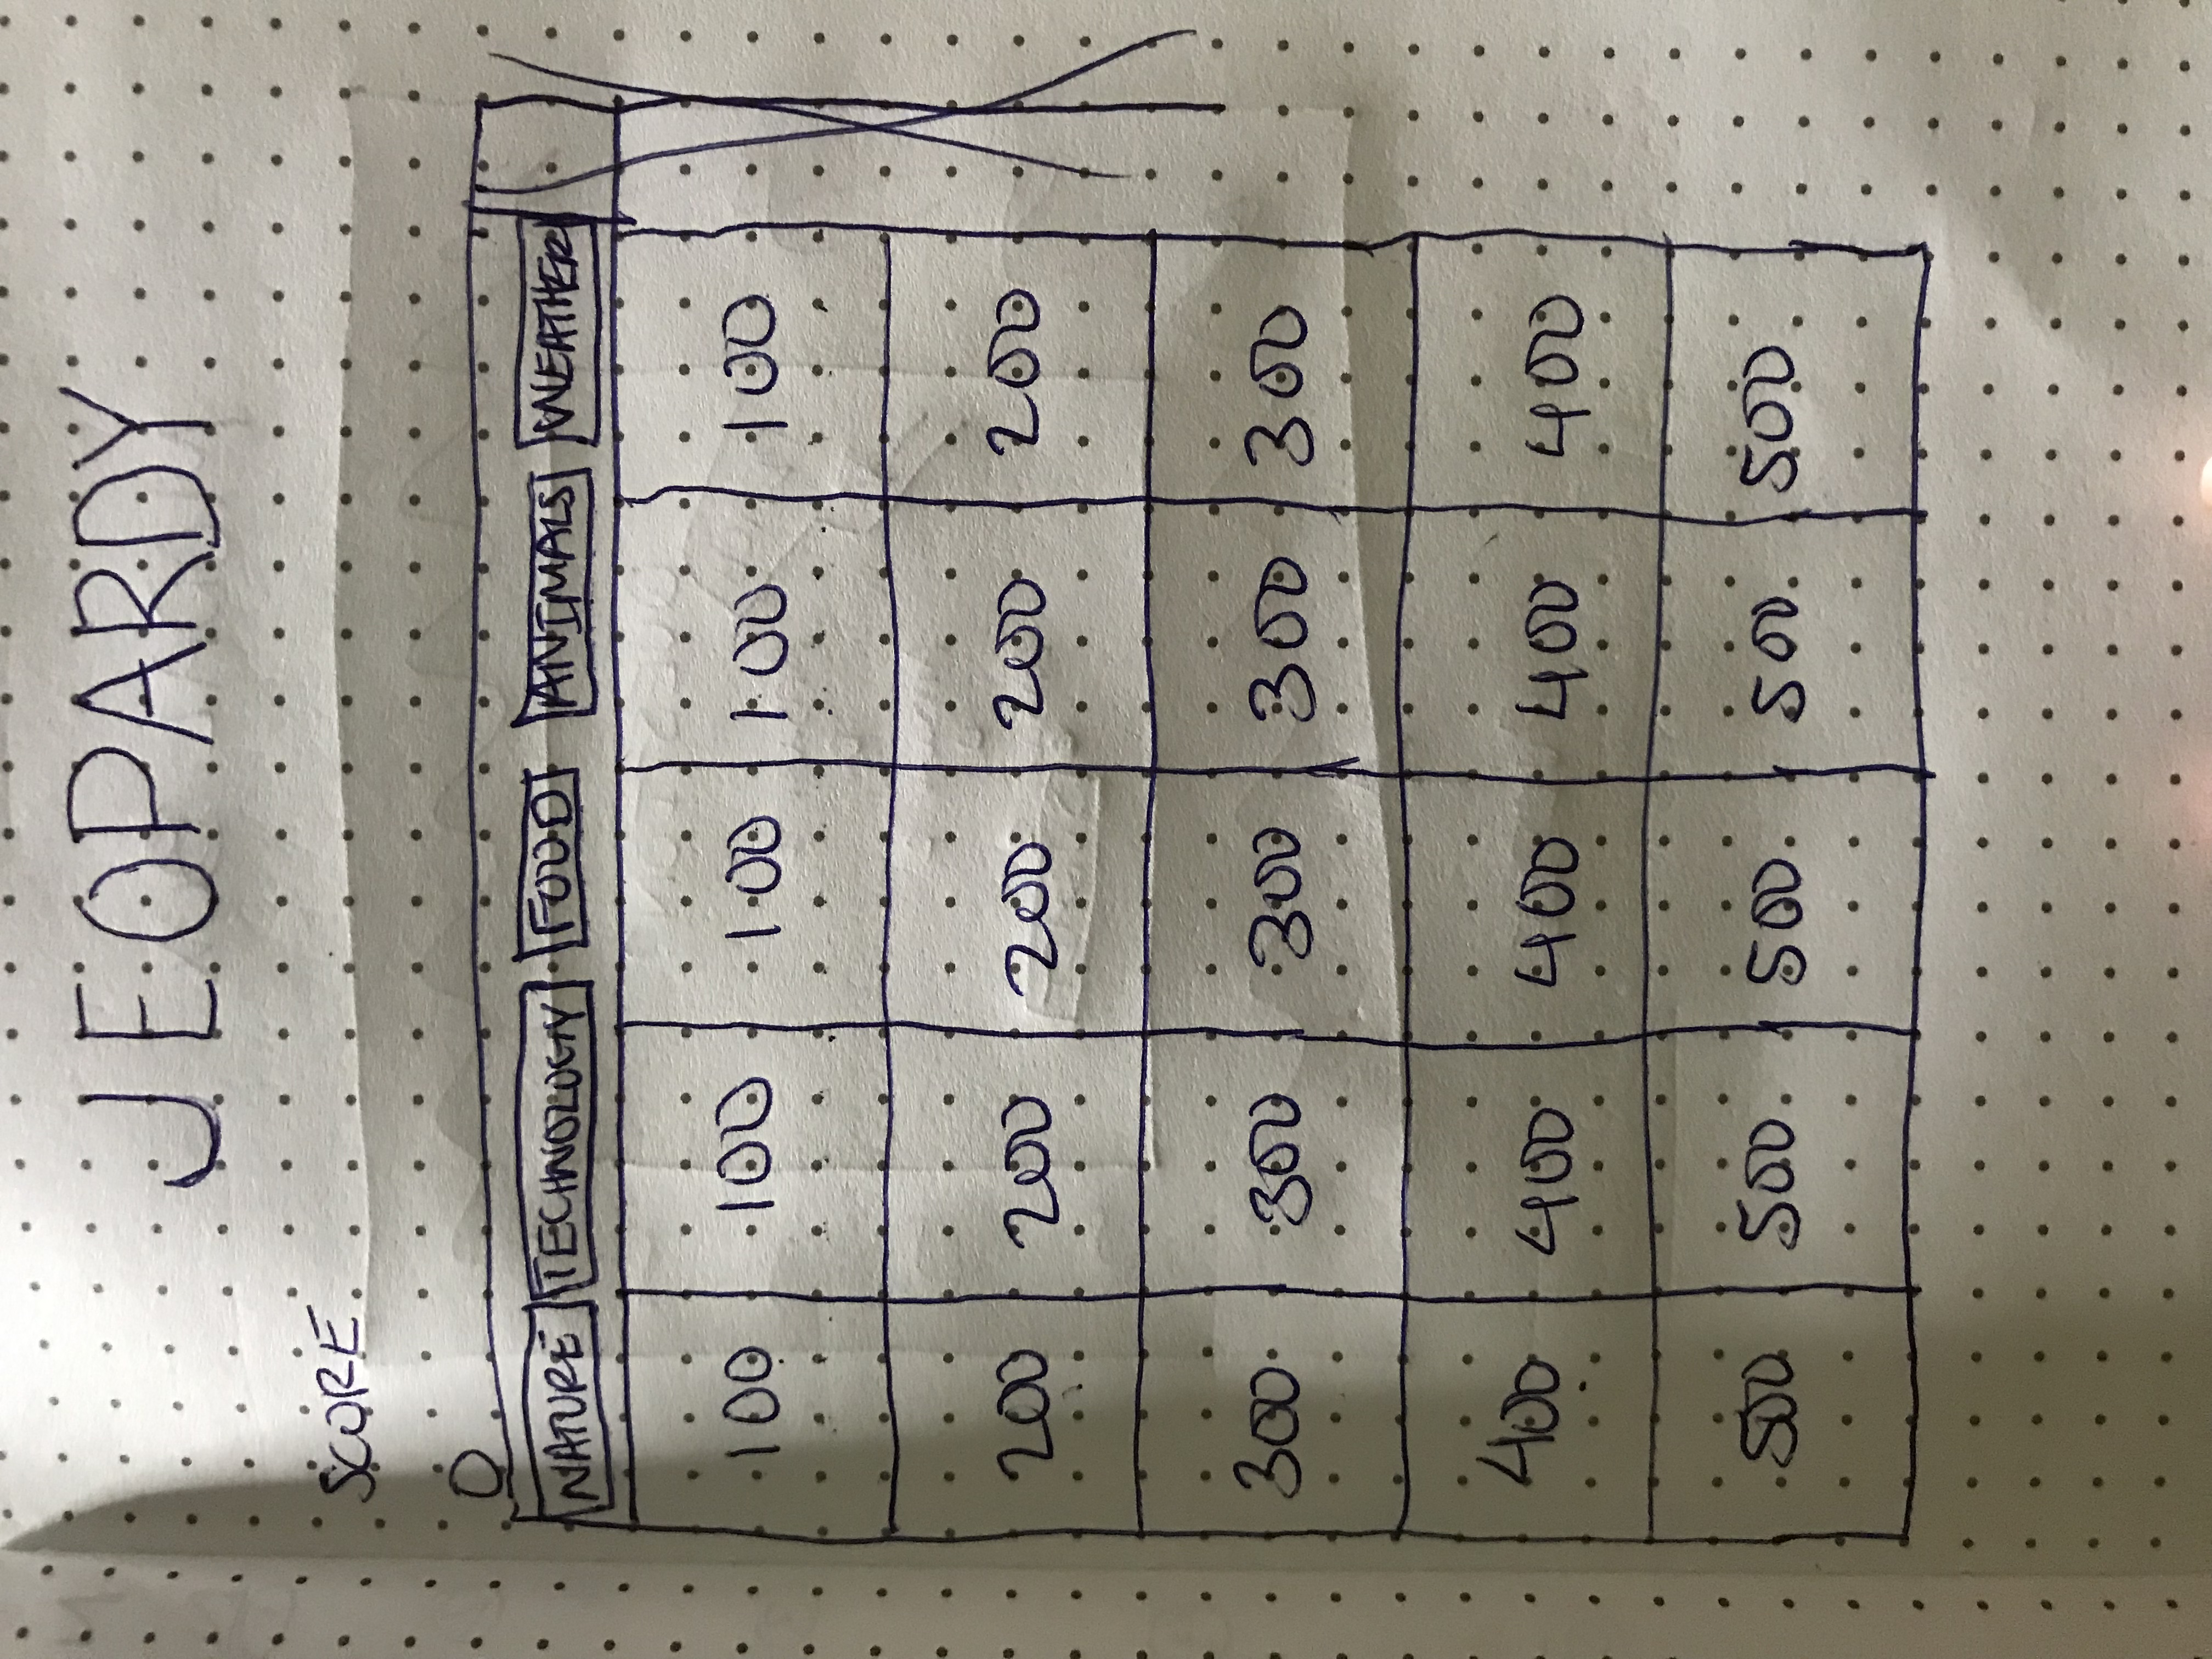 JEOPARDY
SCORE
0
NATURE TECHNOLOGY FOOD ANIMALS WEATHER
100 100 100 100 100
200 200 200 200 200
300 300 300 300 300
400 400 400 400 400
500 500 500 500 500